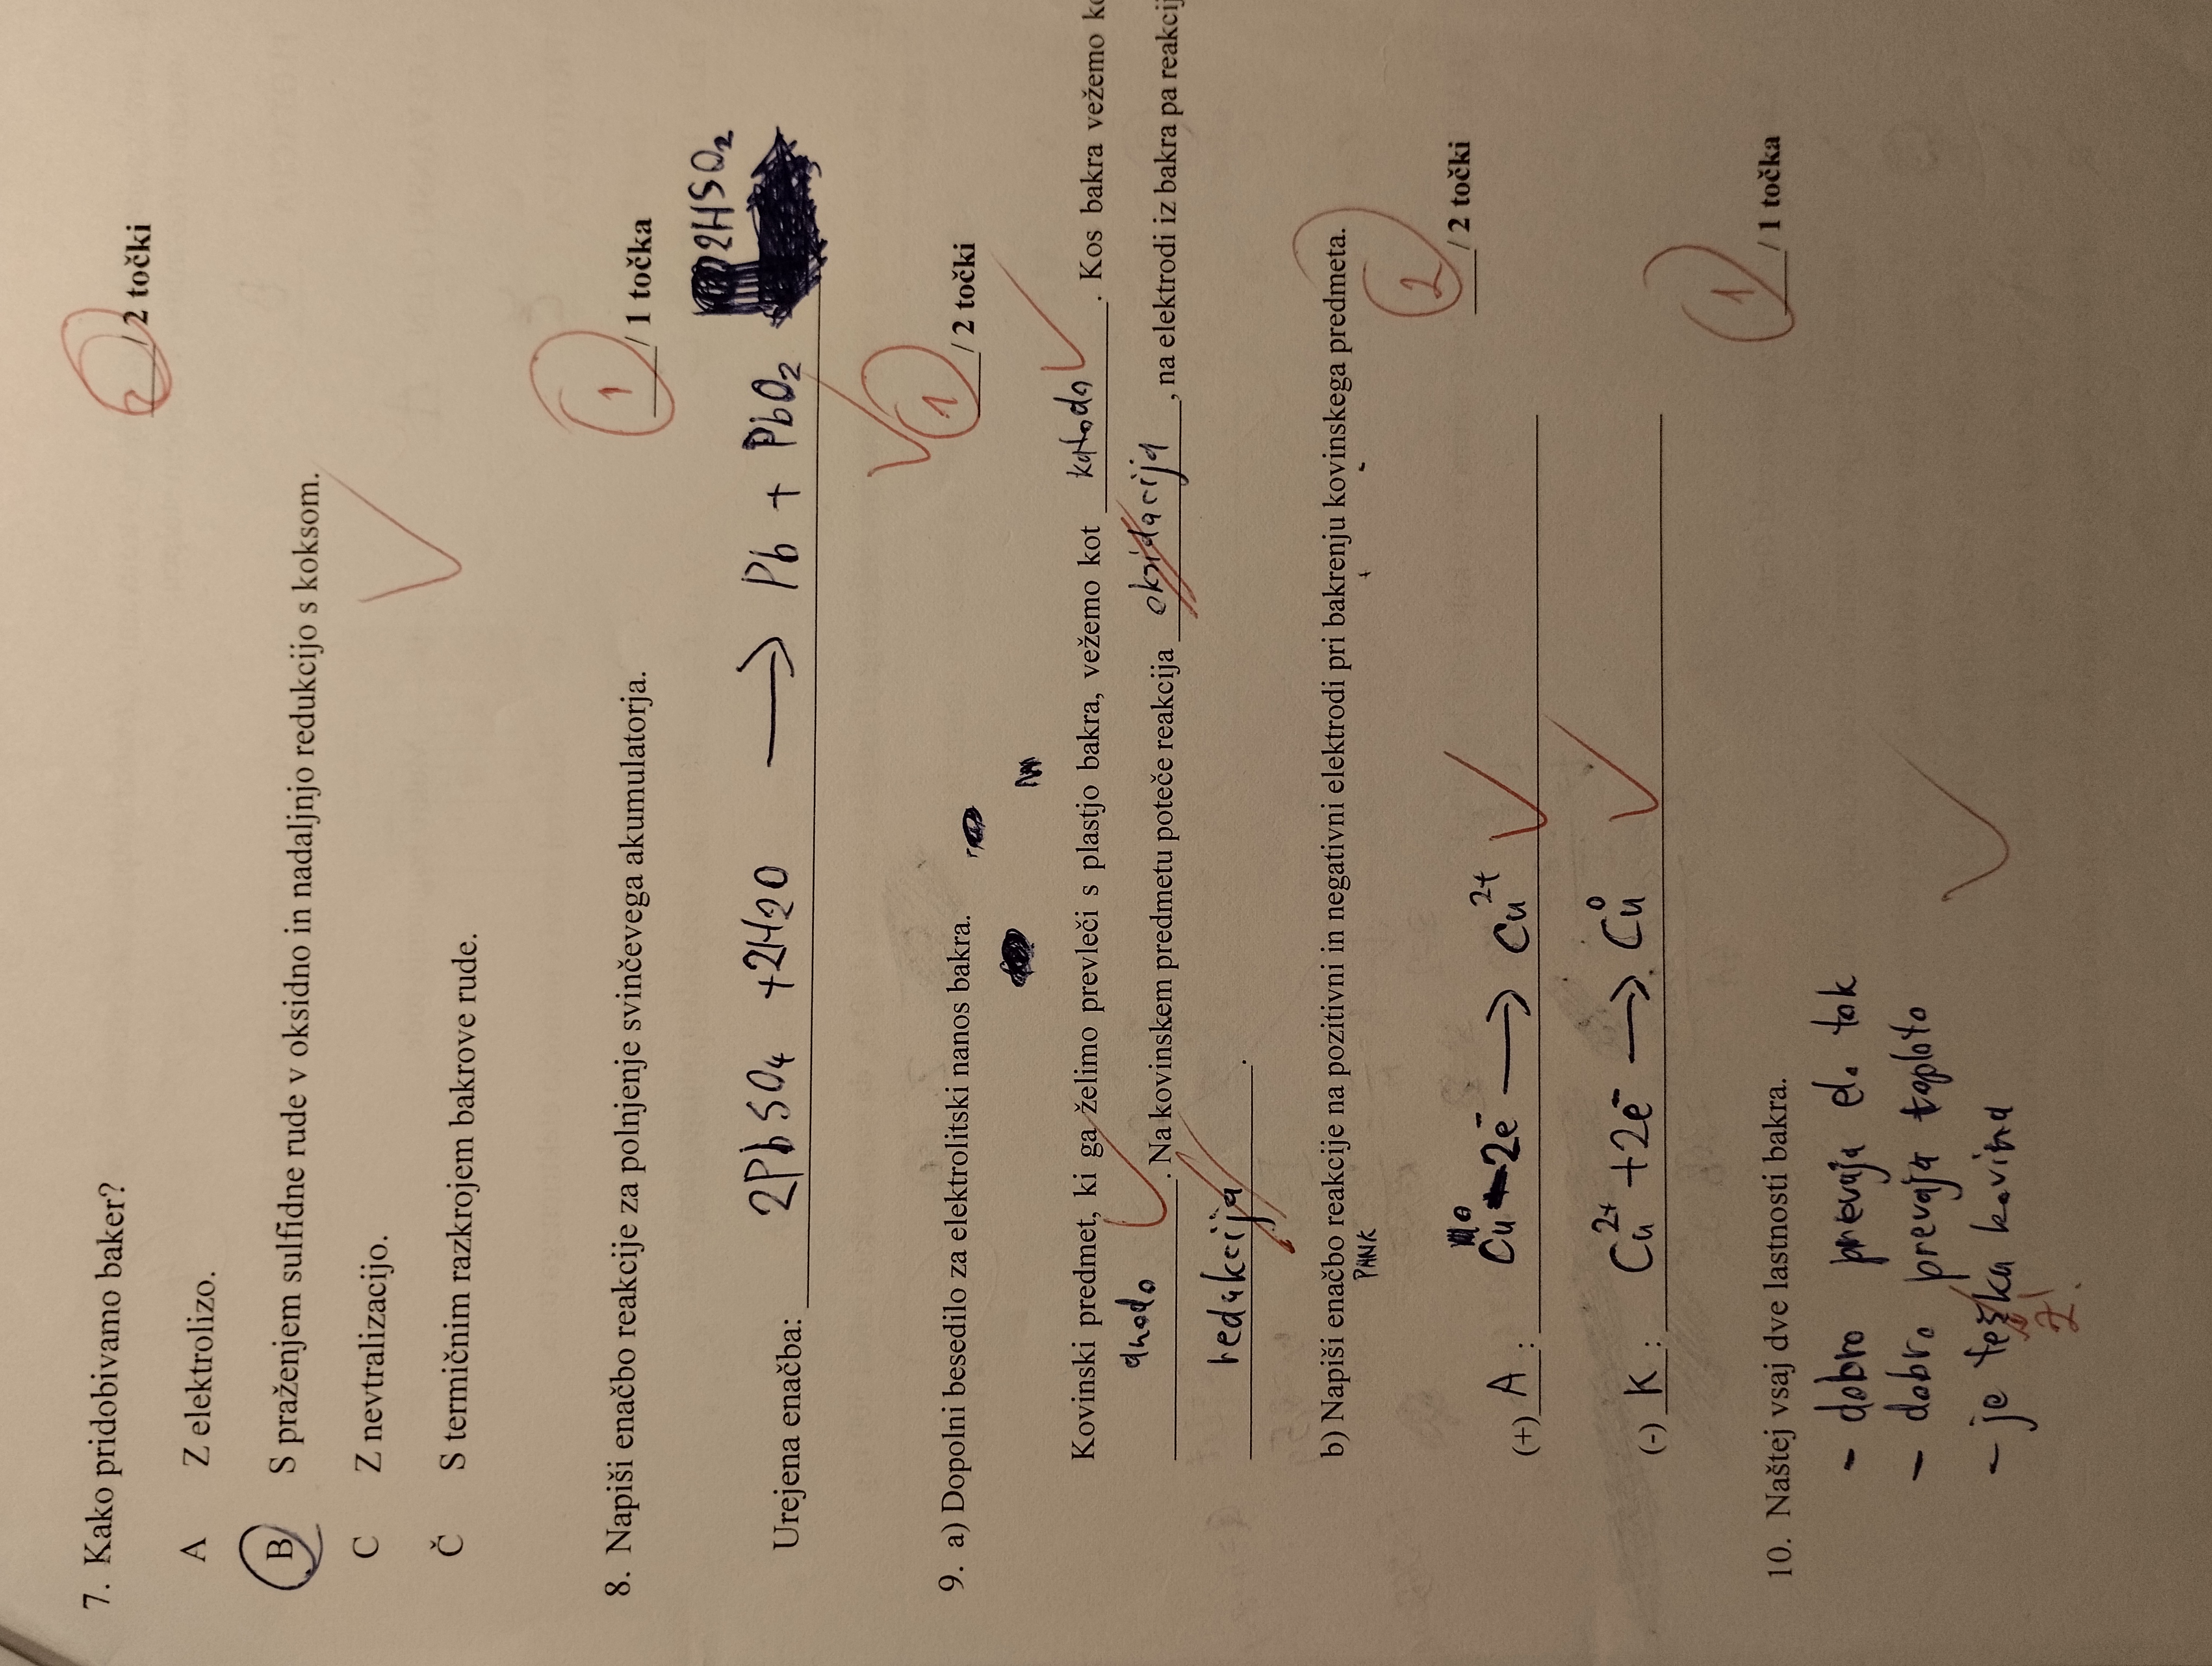 7. Kako pridobivamo baker?
2 / 2 točki
A Z elektrolizo.
B S praženjem sulfidne rude v oksidno in nadaljnjo redukcijo s koksom.
C Z nevtralizacijo.
Č S termičnim razkrojem bakrove rude.
8. Napiši enačbo reakcije za polnjenje svinčevega akumulatorja.
1 / 1 točka
2HSO₂
Urejena enačba: 2PbSO₄ +2H2O → Pb + PbO₂
9. a) Dopolni besedilo za elektrolitski nanos bakra.
1 / 2 točki
Kovinski predmet, ki ga želimo prevleči s plastjo bakra, vežemo kot katodo. Kos bakra vežemo ko
anodo. Na kovinskem predmetu poteče reakcija oksidacija, na elektrodi iz bakra pa reakcij
redukcija.
b) Napiši enačbo reakcije na pozitivni in negativni elektrodi pri bakrenju kovinskega predmeta.
PANK + -
2 / 2 točki
(+) A : Cu⁰ -2e⁻ → Cu²⁺
(-) K : Cu²⁺ +2e⁻ → Cu⁰
1 / 1 točka
10. Naštej vsaj dve lastnosti bakra.
- dobro prevaja el. tok
- dobro prevaja toploto
- je teška kovina
Ž!